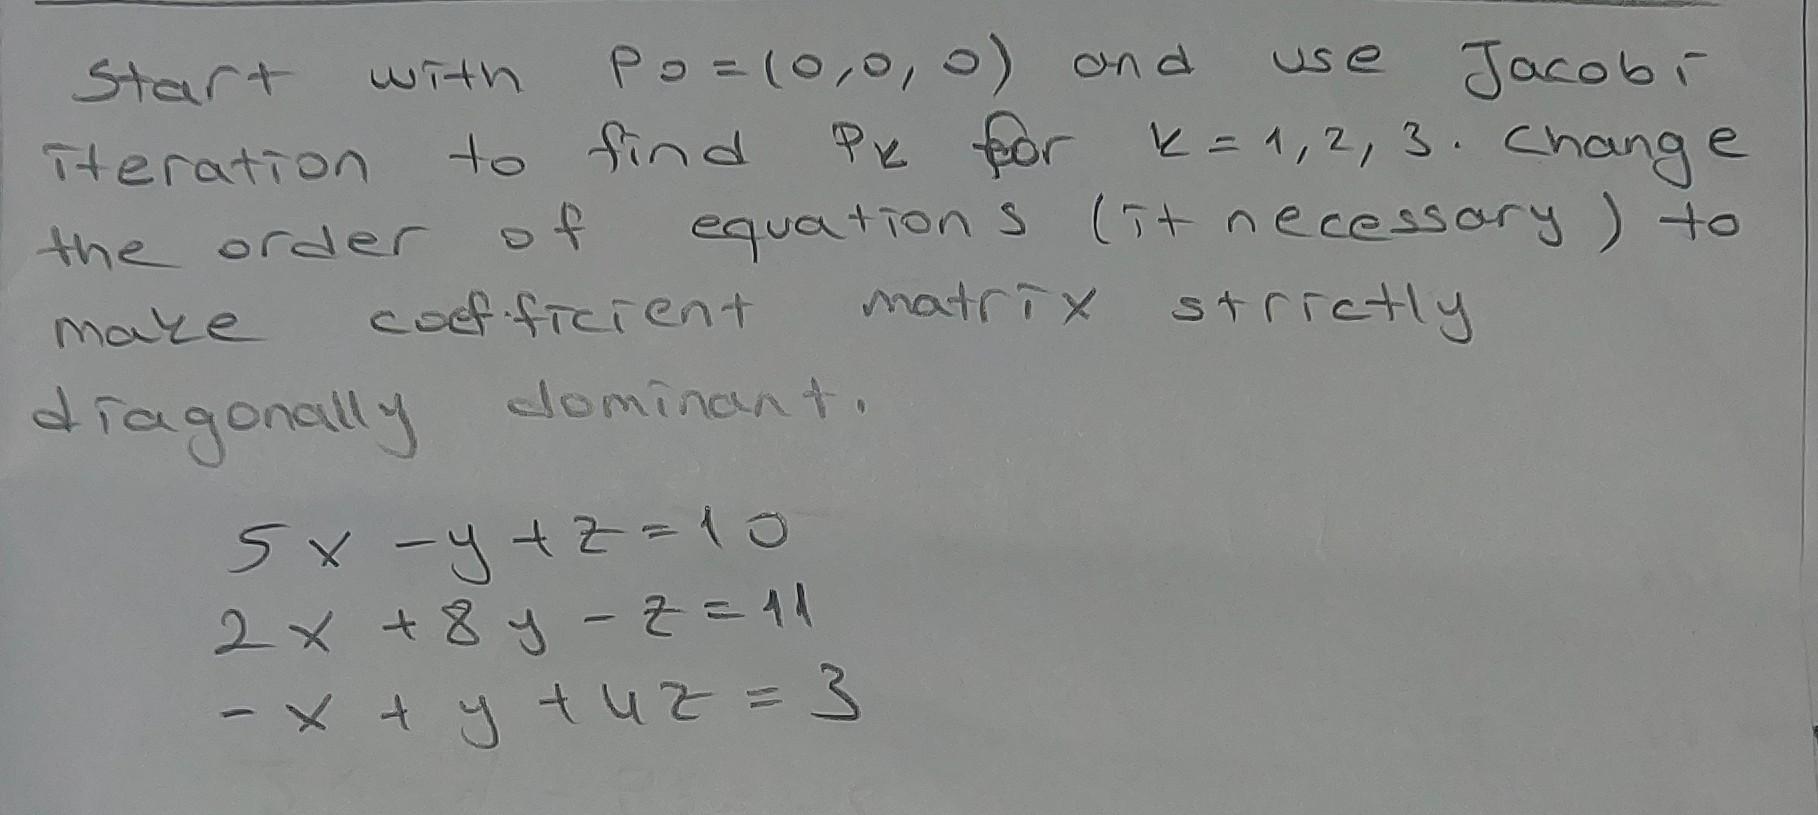 Start with P0=(0,0,0) and use Jacobi
iteration to find Pk for k=1,2,3. Change
the order of equations (it necessary) to
make coefficient matrix strictly
diagonally dominant.
5x -y+z=10
2x +8y -z=11
-x + y +4z = 3